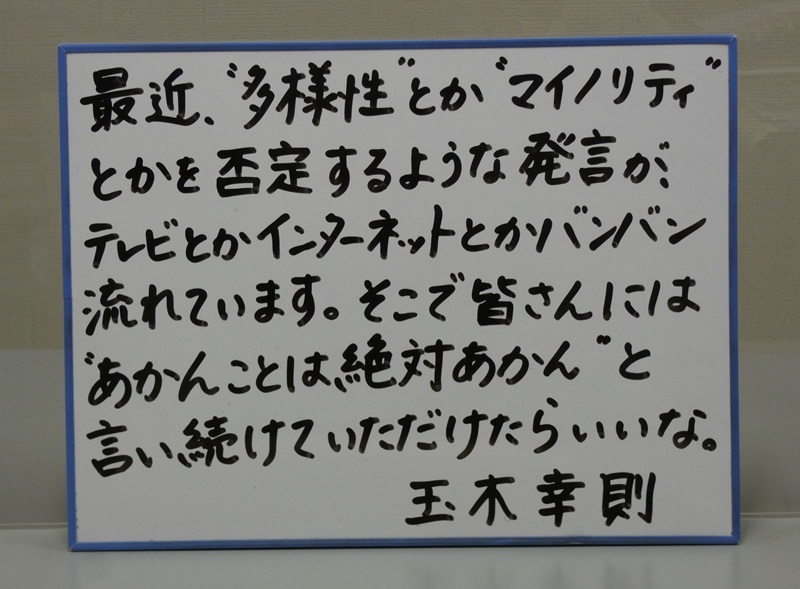 最近、"多様性"とか"マイノリティ"
とかを否定するような発言が、
テレビとかインターネットとかバンバン
流れています。そこで皆さんには
"あかんことは、絶対あかん"と
言い続けていただけたらいいな。
玉木幸則